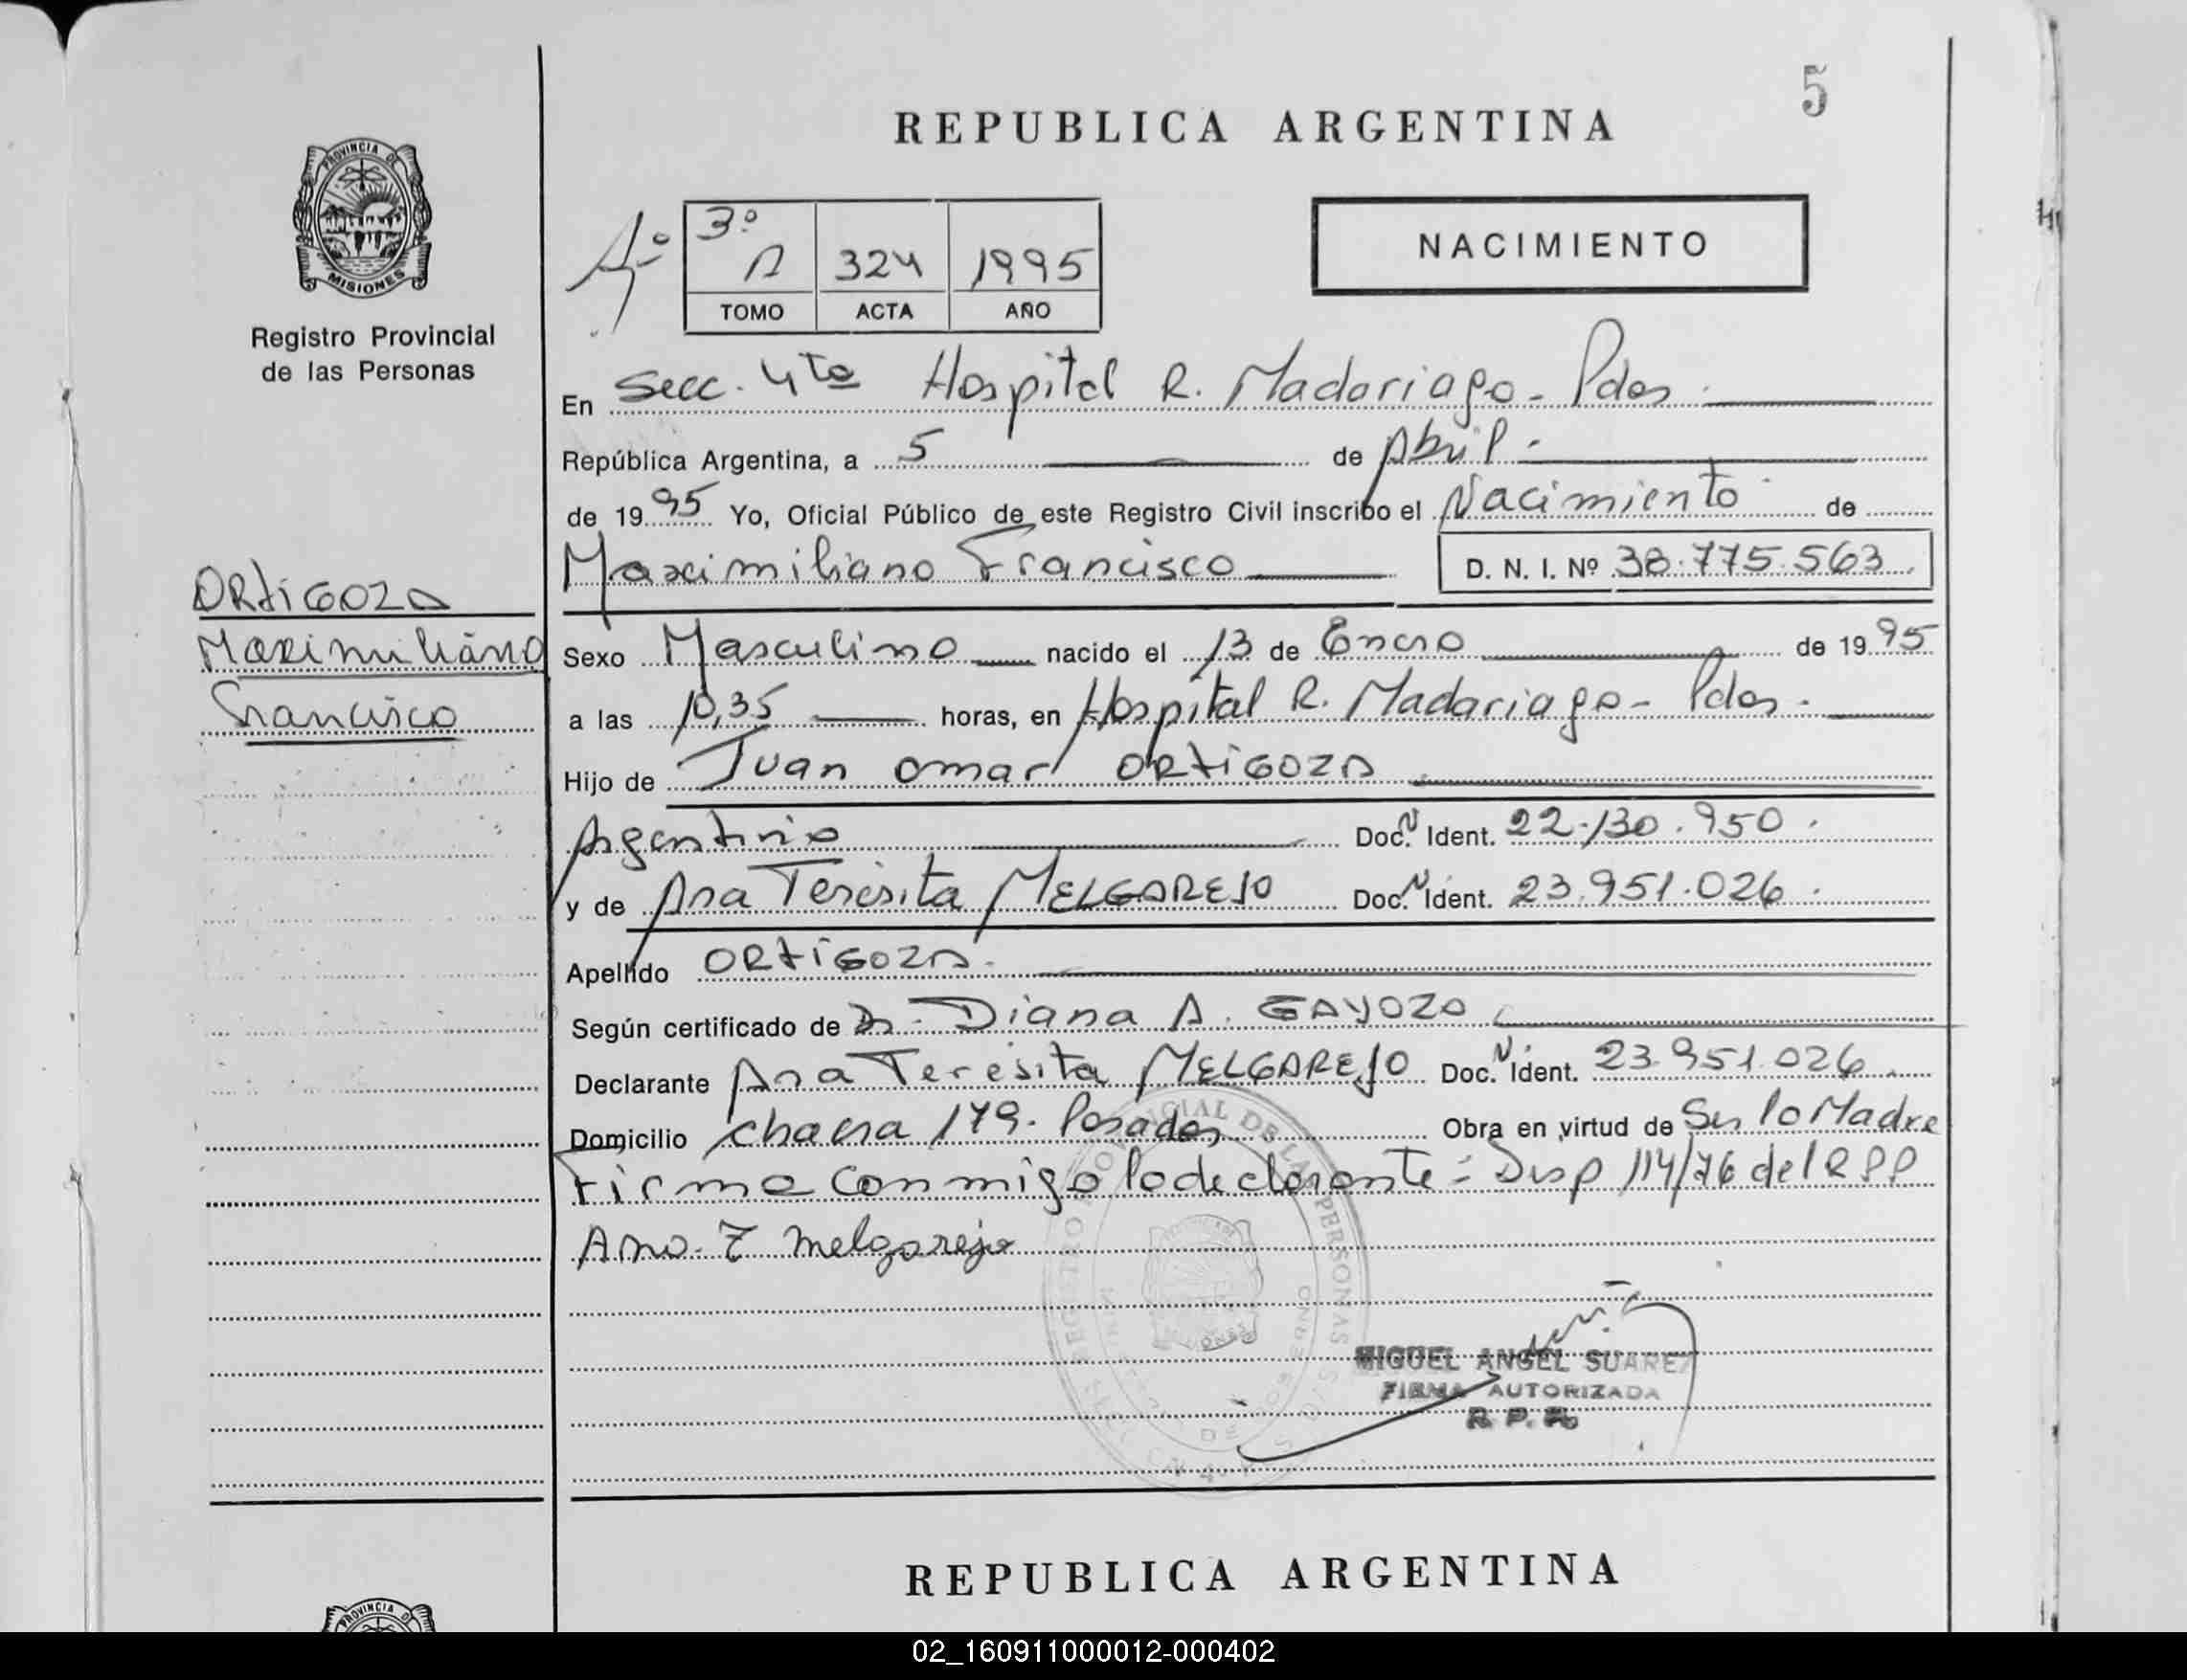 5
REPUBLICA ARGENTINA
PROVINCIA DE
MISIONES
Registro Provincial
de las Personas
3º
A 324 1995
TOMO ACTA AÑO
NACIMIENTO
En Secc. 4ta Hospital R. Madariaga - Pdas
República Argentina, a 5 de Abril
de 1995 Yo, Oficial Público de este Registro Civil inscribo el Nacimiento de
Maximiliano Francisco D. N. I. Nº 38.775.563
ORtiGOZA
Maximiliano
Francisco
Sexo Masculino nacido el 13 de Enero de 1995
a las 10,35 horas, en Hospital R. Madariaga - Pdas.
Hijo de Juan Omar ORtiGOZA
Argentino Doc. N Ident. 22.130.950.
y de Ana Teresita MELGAREJO Doc. N Ident. 23.951.026.
Apellido ORtiGOZA.
Según certificado de Dr. Diana A. GAYOZO
Declarante Ana Teresita MELGAREJO Doc. N Ident. 23.951.026.
Domicilio Chacra 179. Posadas Obra en virtud de Ser la Madre
Firma conmigo la declarante = Disp 114/76 del RPP
Ana T Melgarejo
MIGUEL ANGEL SUAREZ
FIRMA AUTORIZADA
R. P. P.
REPUBLICA ARGENTINA
PROVINCIA DE
02_160911000012-000402